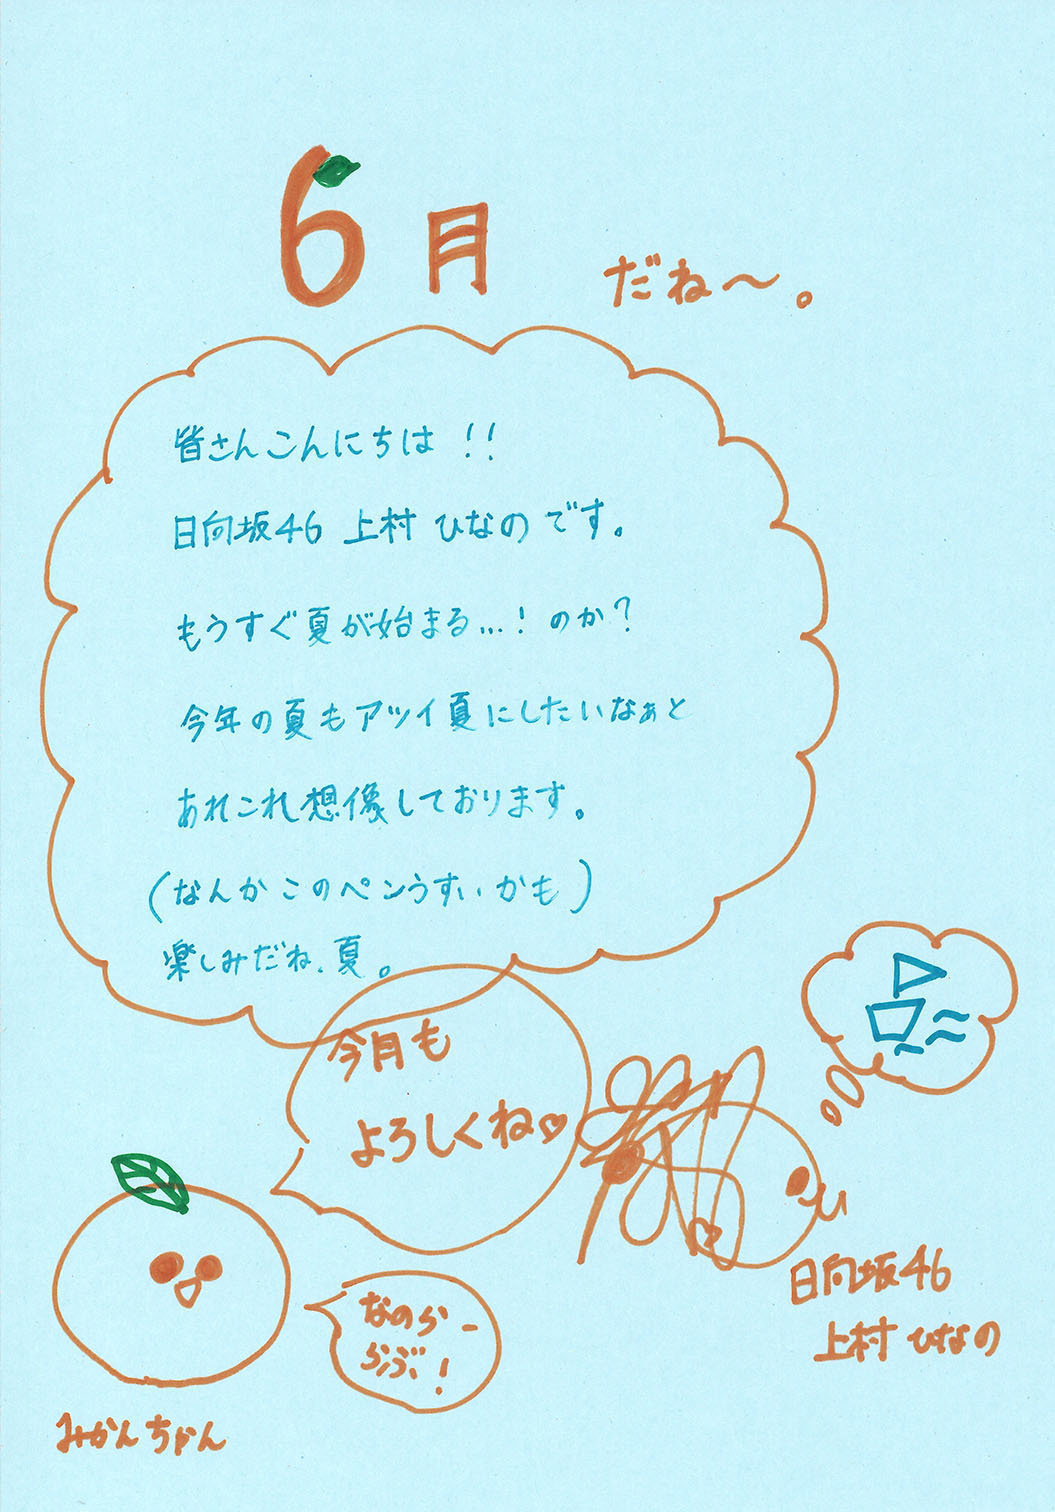 6月 だね〜。
皆さんこんにちは!!
日向坂46 上村 ひなの です。
もうすぐ夏が始まる...!のか?
今年の夏もアツイ夏にしたいなぁと
あれこれ想像しております。
(なんかこのペンうすいかも)
楽しみだね、夏。
今月も
よろしくね♡
なのらー
らぶ!
みかんちゃん
日向坂46
上村 ひなの